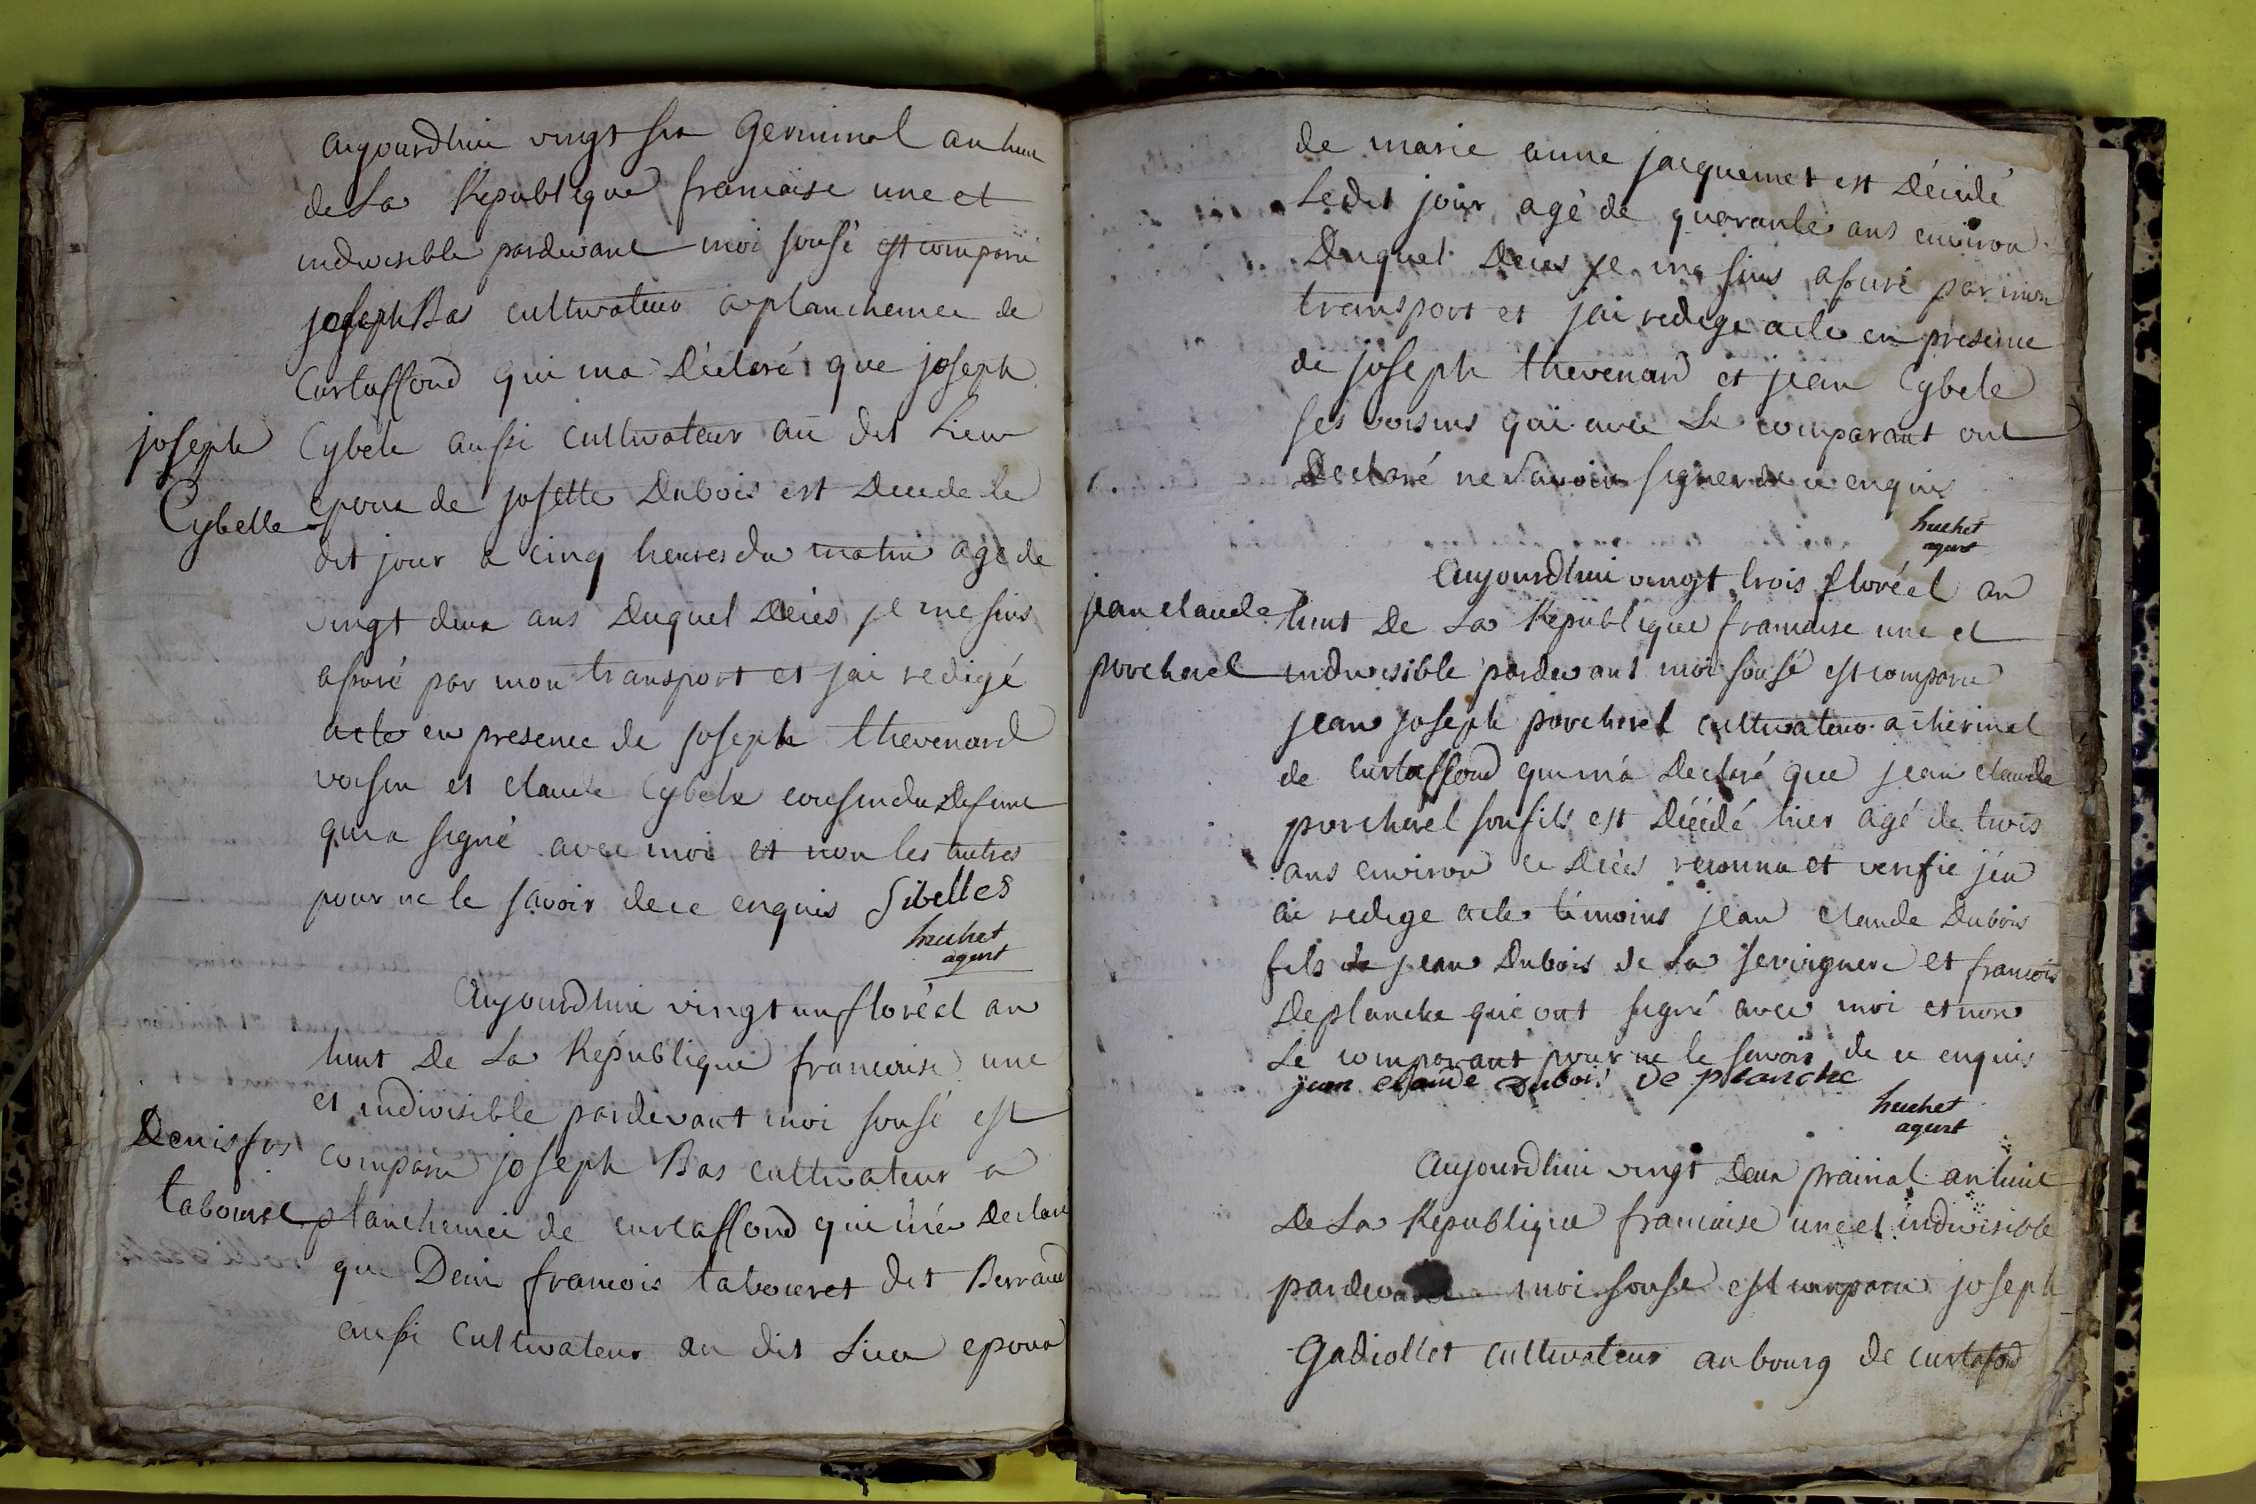 aujourdhui vingt six Germinal an huit
de La Republique francaise une et
indivisible pardevant moi sousé est comparu
joseph Bas cultivateur a planchemei de
Curtaffond qui ma Déclaré que joseph
joseph
Cybele aussi cultivateur au dit Lieu
Cybelle
epoux de josette Dubois est Decede le
dit jour a cinq heures du matin age de
vingt deux ans Duquel Décès je me suis
assuré par mon transport et jai redigé
acte en presence de joseph thevenard
voisin et claude Cybele cousin du Defunt
qui a signé avec moi et non les autres
pour ne le savoir de ce enquis Sibelles
huchet
agent
Aujourdhui vingt un floréal an
huit De La République francaise une
et indivisible pardevant moi sousé est
Denis fois
comparu joseph Bas cultivateur a
tabouret
planchemei de curtaffond qui má Declaré
que Denis francois tabouret dit Berraud
aussi cultivateur au dit Lieu epoux
de marie anne jacquemet est Décédé
Ledit jour agé de quarante ans environ
Duquel Deces je me suis assuré par mon
transport et jai redige acte en presence
de joseph thevenard et jean Cybele
ses voisins qui avec Le comparant ont
Declaré ne Savoir signer de ce enquis
huchet
agent
Aujourdhui vingt trois floréal an
jean claude
huit De La République francaise une et
porcherel
indivisible pardevant moi sousé est comparu
jean joseph porcherel cultivateur a therinel
de Curtaffond qui m'a Declaré que jean claude
porcherel son fils est Décédé hier agé de trois
ans environ ce Décès reconnu et verifie j'en
ai redige acte témoins jean claude Dubois
fils de jean Dubois de La et francois
Deplanche qui ont signé avec moi et non
Le comparant pour ne le savoir de ce enquis
jean claude dubois De planche
huchet
agent
Aujourdhui vingt Deux prairial an huit
De La Republique francaise une et indivisible
pardevant moi sousé est comparu joseph
Gadiollet cultivateur au bourg de curtafond